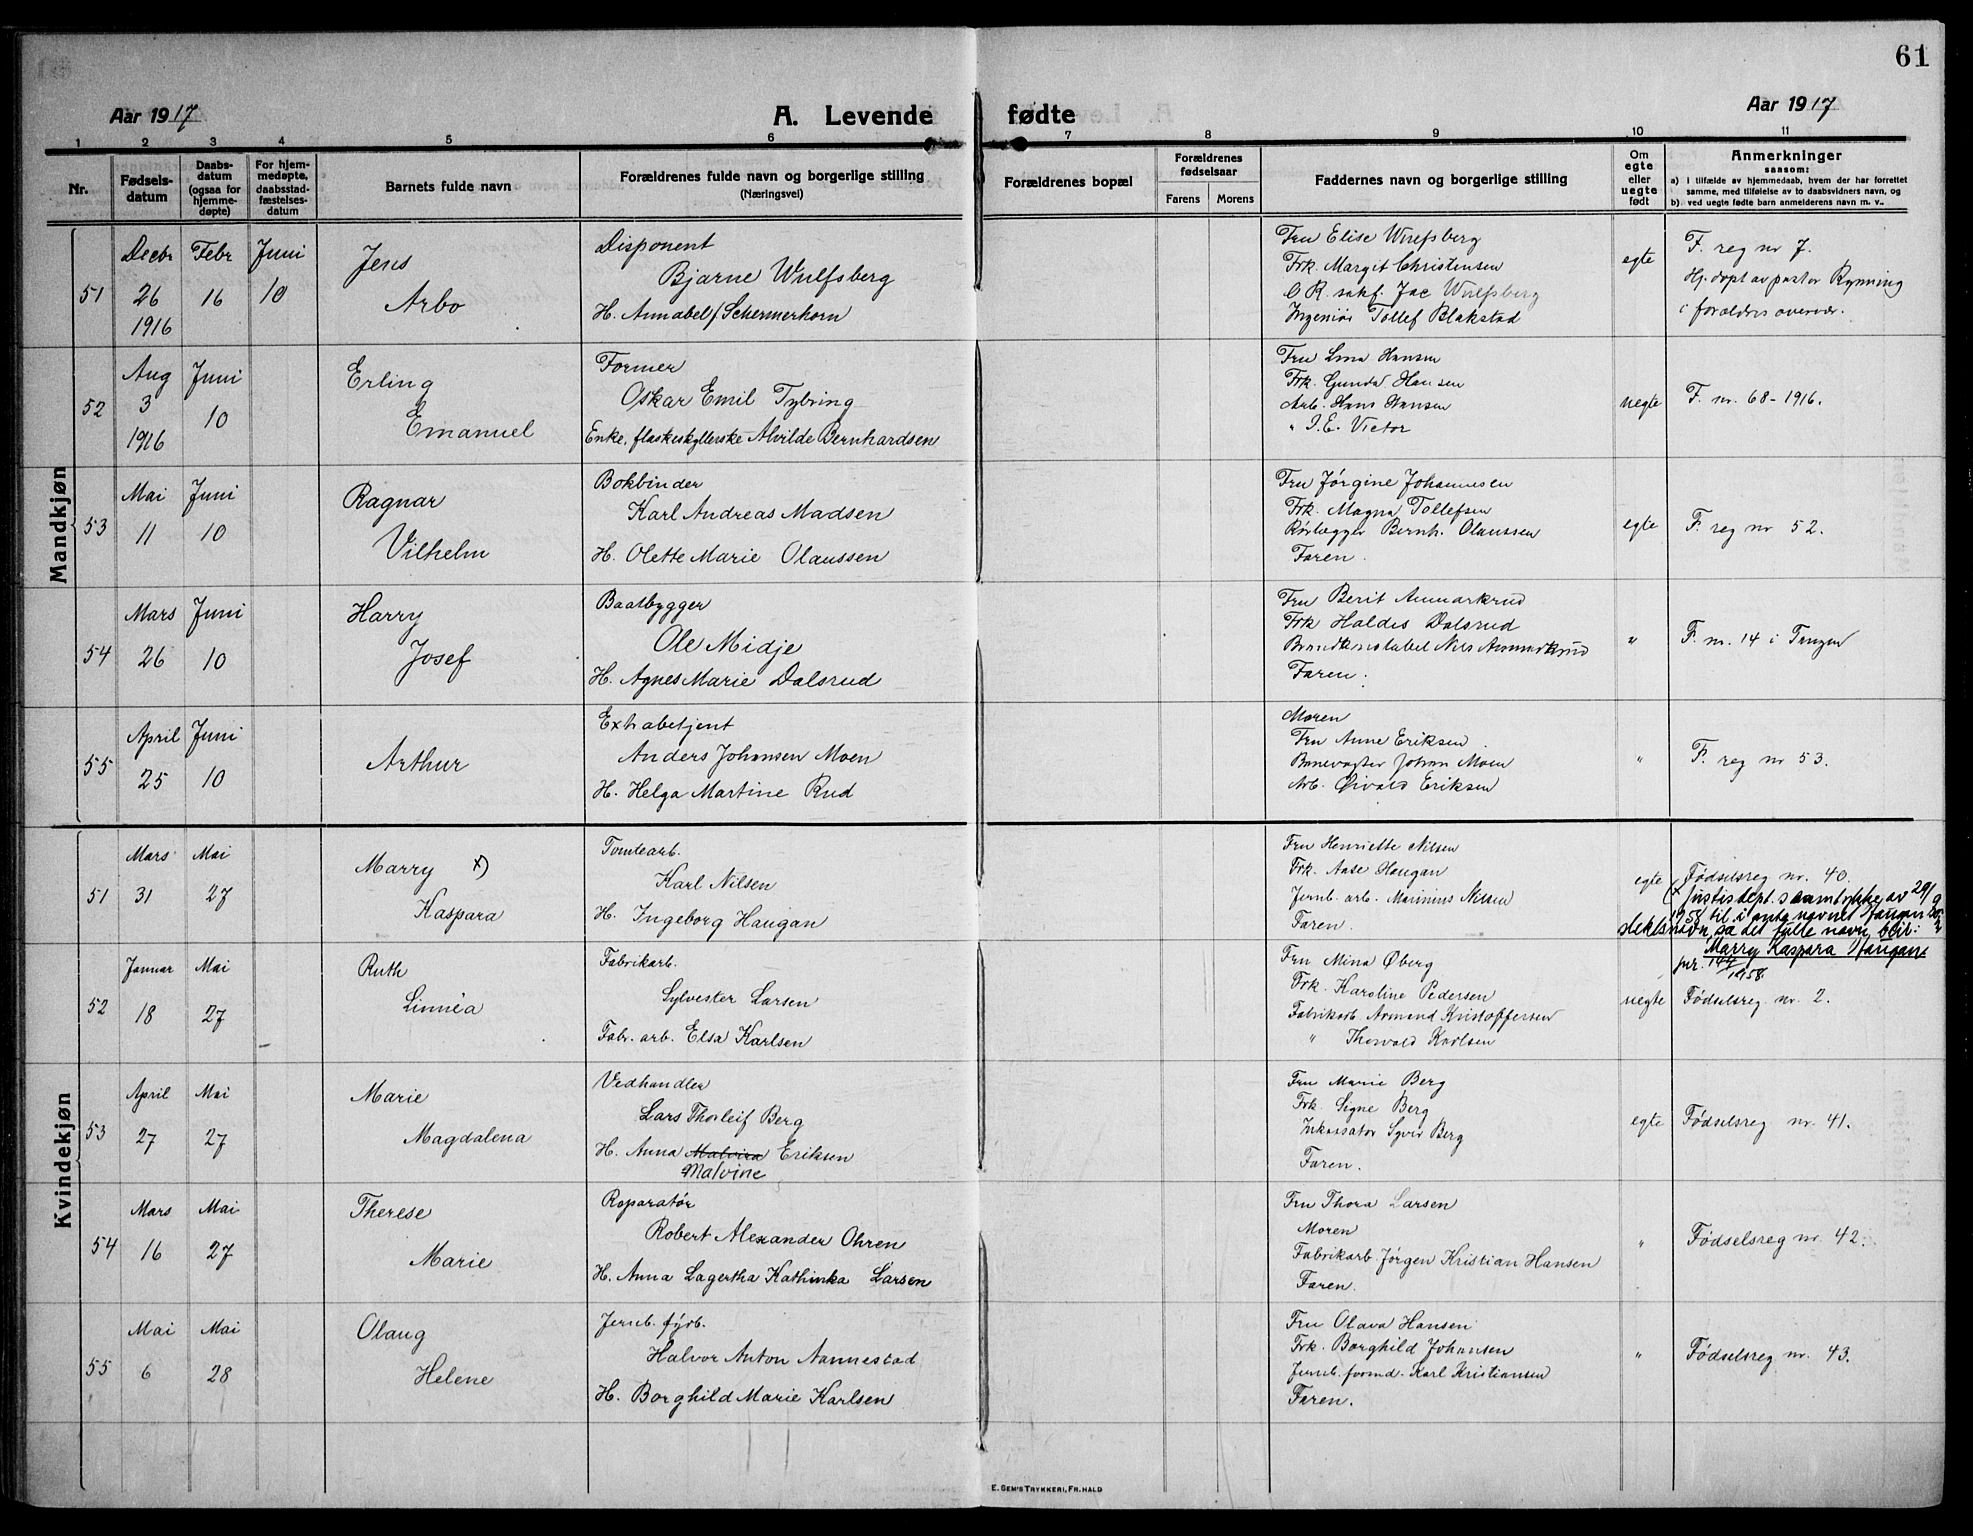 61
Aar 1917
A. Levende fødte
Aar 1917
1 2 3 4 5 6 7 8 9 10 11
Nr.
Fødsels-
datum
Daabs-
datum
(ogsaa for
hjemme-
døpte)
For hjem-
medøpte,
daabsstad-
fæstelses-
datum
Barnets fulde navn
Forældrenes fulde navn og borgerlige stilling
(Næringsvei)
Forældrenes bopæl
Forældrenes
fødselsaar
Farens Morens
Faddernes navn og borgerlige stilling
Om
egte
eller
uegte
født
Anmerkninger
saasom:
a) I tilfælde av hjemmedaab, hvem der har forrettet
samme, med tilføielse av to daabsvidners navn, og
b) ved uegte fødte barn anmelderens navn m. v..
Mandkjøn
51
Decbr
26
1916
Febr
16
Juni
10
Jens
Arbo
Disponent
Bjarne Wulfsberg
H. Annabel Schermerhorn
Fru Elise Wulfsberg
Frk. Margit Christensen
O. R. sakf. Jac Wulfsberg
Ingeniør Tollef Blakstad
egte
F. reg nr 7.
Hj. døpt av pastor Rynning
i forældres overvær.
52
Aug
3
1916
Juni
10
Erling
Emanuel
Former
Oskar Emil Tybring
Enke, flaskeskyllerske Alvilde Bernhardsen
Fru Lina Hansen
Frk. Gunda Hansen
Arb. Hans Hansen
" I. E. Victor
uegte
F. nr. 68-1916.
53
Mai
11
Juni
10
Ragnar
Vilhelm
Bokbinder
Karl Andreas Madsen
H. Olette Marie Olaussen
Fru Jørgine Johannesen
Frk. Magna Tollefsen
Rørlægger Bernh. Olaussen
Faren.
egte
F. reg nr 52.
54
Mars
26
Juni
10
Harry
Josef
Baatbygger
Ole Midje
H. Agnes Marie Dalsrud
Fru Berit Ammarkrud
Frk Haldis Dalsrud
Brandkonstabel Nils Ammarkrud
Faren.
"
F. nr. 14 i
55
April
25
Juni
10
Arthur
Extrabetjent
Anders Johansen Moen
H. Helga Martine Rud
Moren
Fru Anne Eriksen
Banevogter Johan Moen
Arb. Øivald Eriksen
"
F. reg nr 53.
Kvindekjøn
51
Mars
31
Mai
27
Marry x)
Kaspara
Tomtearb.
Karl Nilsen
H. Ingeborg Haugan
Fru Henriette Nilsen
Frk. Aase Haugan
Jernb. arb. Marinius Nilsen
Faren.
egte
Fødselsreg nr. 40.
x Justisdept. samtykke av 29/9
1958 til å anta navnet Haugan som
slektsnavn, så det fulle navn blir:
Marry Kaspara Haugan.
jnr. 144/1958
52
Januar
18
Mai
27
Ruth
Linnéa
Fabrikarb.
Sylvester Larsen
Fabr. arb. Elsa Karlsen
Fru Mina Øberg
Frk. Karoline Pedersen
Fabrikarb Armand Kristoffersen
" Thorvald Karlsen
uegte
Fødselsreg. nr. 2.
53
April
27
Mai
27
Marie
Magdalena
Vedhandler
Lars Thorleif Berg
H. Anna Malvira Eriksen
Malvine
Fru Marie Berg
Frk. Signe Berg
Inkassator Syver Berg
Faren.
egte
Fødselsreg nr. 41.
54
Mars
16
Mai
27
Therese
Marie
Reparatør
Robert Alexander Ohren
H. Anna Lagertha Kathinka Larsen
Fru Thora Larsen
Moren
Fabrikarb Jørgen Kristian Hansen
Faren.
"
Fødselsreg nr. 42.
55
Mai
6
Mai
28
Olaug
Helene
Jernb. fyrb.
Halvor Anton Nannestad
H. Borghild Marie Karlsen
Fru Olava Hansen
Frk. Borghild Johansen
Jernb. formd. Karl Kristiansen
Faren.
"
Fødselsreg nr. 43.
E. SEM'S TRYKKERI, FR. HALD